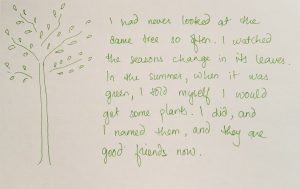 I had never looked at the
same tree so often. I watched
the seasons change in its leaves.
In the summer, when it was
green, I told myself I would
get some plants. I did, and
I named them, and they are
good friends now.